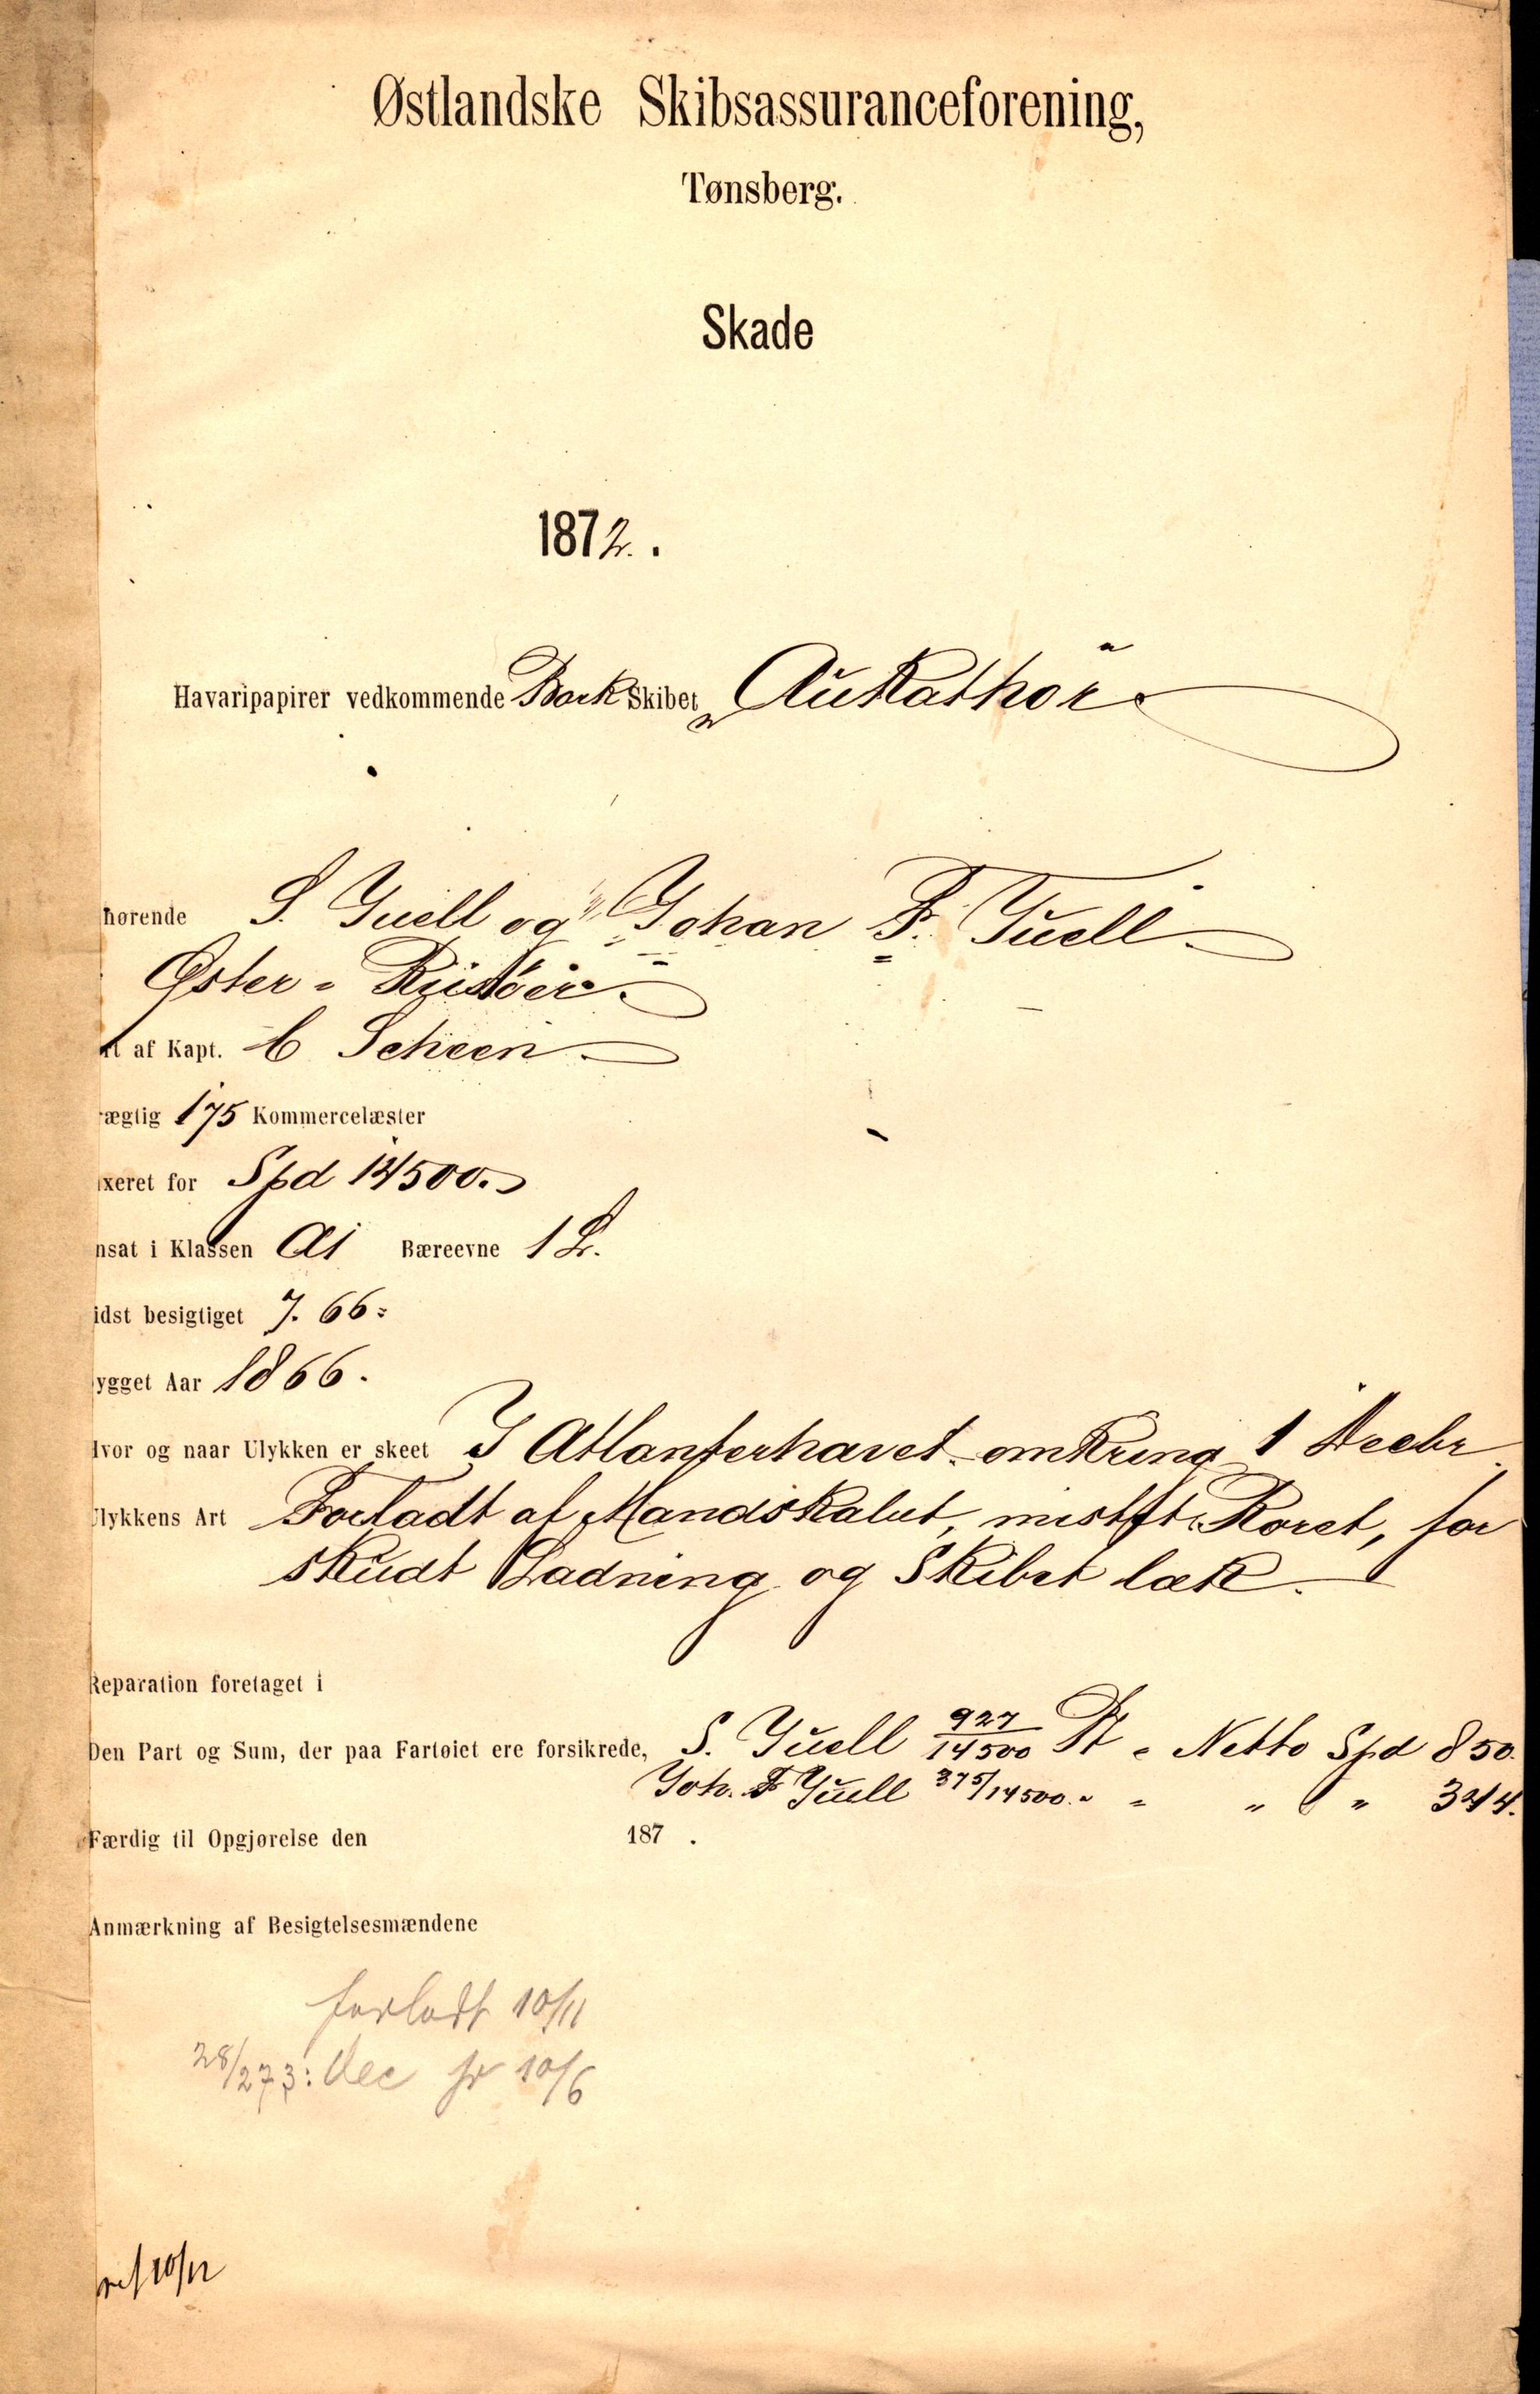 Østlandske Skibsassuranceforening,
Tønsberg.
Skade
1872.
Havaripapirer vedkommende Bark Skibet „Aukathor"
hørende S. Juell og Johan F. Juell
Øster-Riisøer.
rt af Kapt. C Scheen
rægtig 175 Kommercelæster
xeret for Spd 14500.
nsat i Klassen A1 Bæreevne 1 L.
idst besigtiget 7. 66.
ygget Aar 1866.
Hvor og naar Ulykken er skeet I Atlanterhavet omkring 1 Decbr
Ulykkens Art Forladt af Mandskabet, mistet Roret, for
skudt Ladning og Skibet læk.
Reparation foretaget i
Den Part og Sum, der paa Fartøiet ere forsikrede, S. Juell 927/14500 Pt " Netto Spd 850.
Joh. F Juell 375/14500 " " " " 344.
Færdig til Opgjørelse den 187 .
Anmærkning af Besigtelsesmændene
forladt 10/11
28/2 73: Dec 10/6
10/12